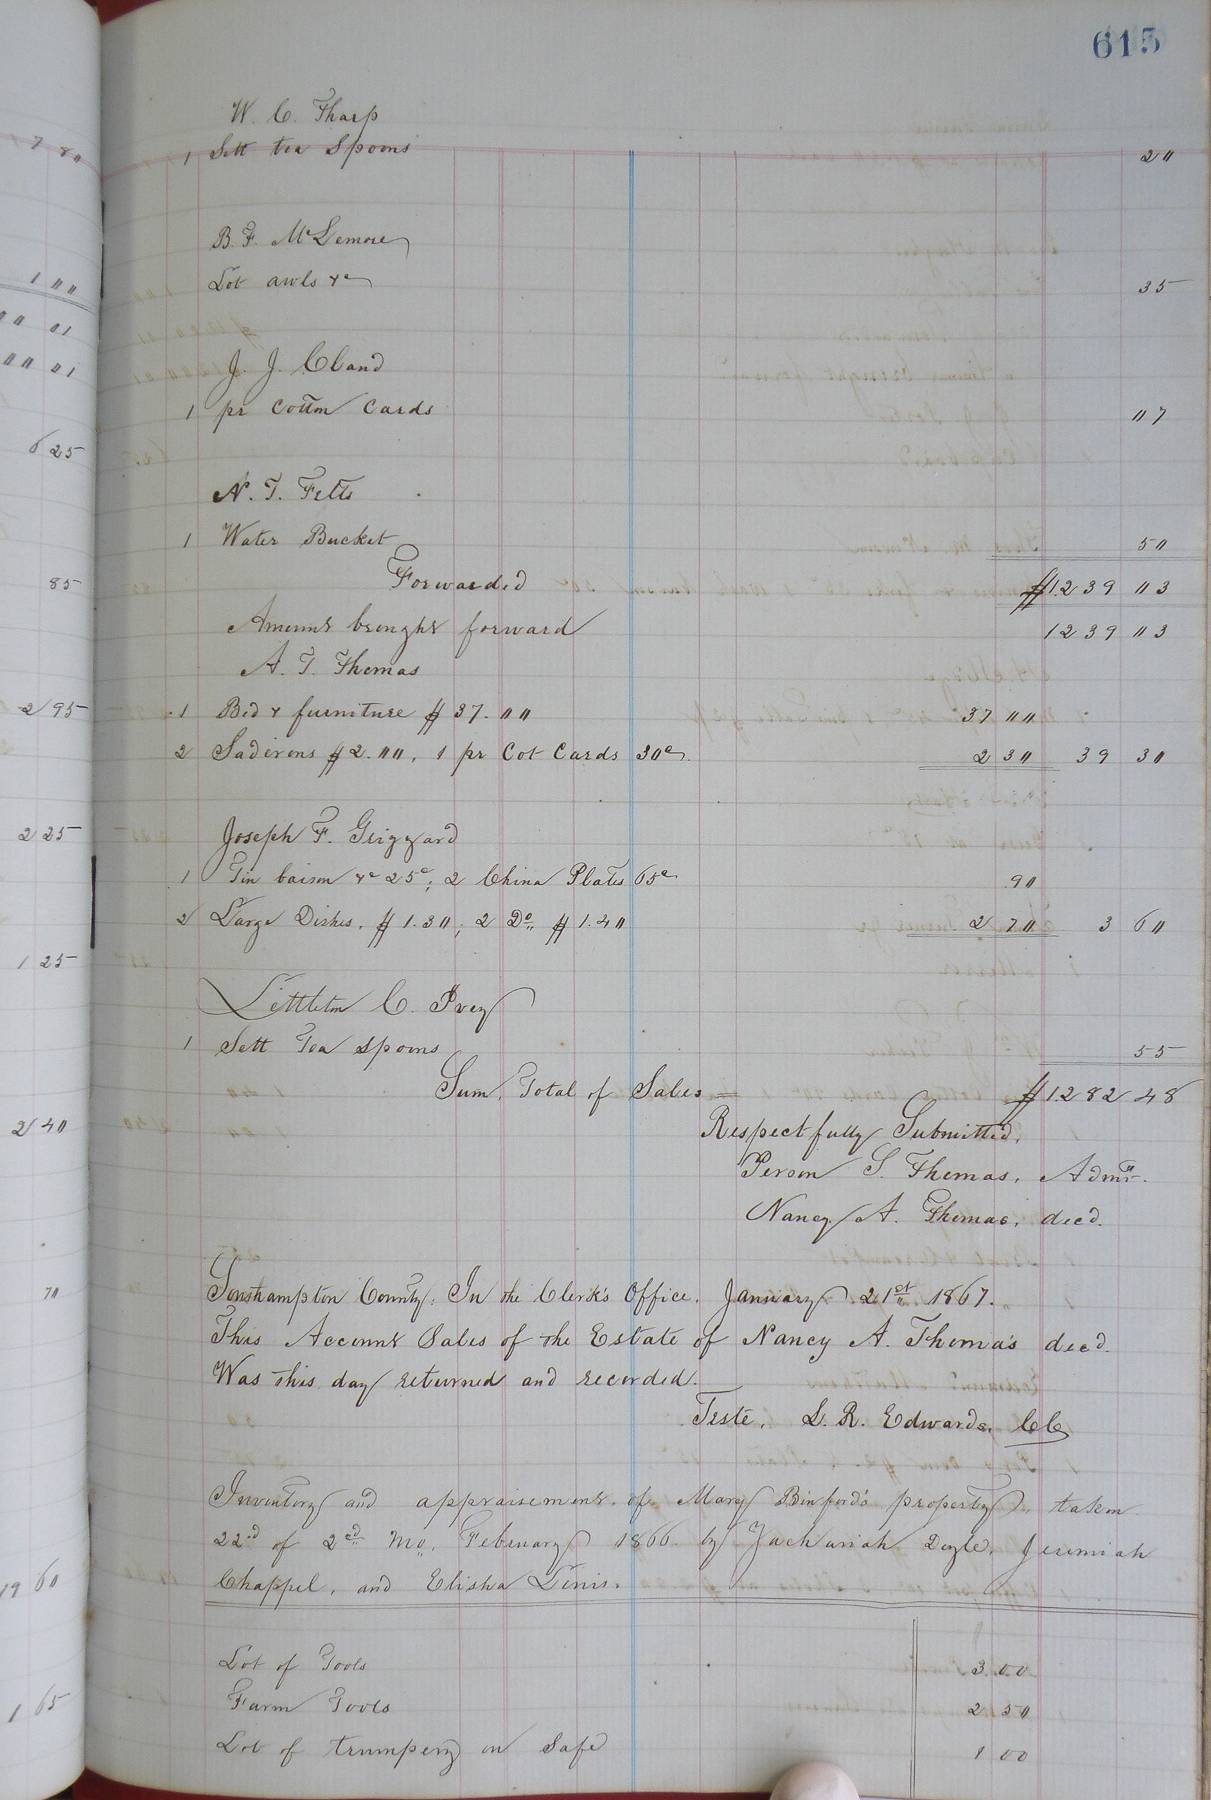 615
W. C. Tharp
1 Sett tea Spoons 20
B. F. McLemore
Lot awls &c 35
J. J. Cland
1 pr Cotton Cards 07
N. T. Felts
1 Water Bucket 50
Forwarded $1239 03
Amount brought forward 1239 03
A. T. Thomas
1 Bed & furniture $37.00 37 00
2 Sadirons $2.00, 1 pr Cot Cards 30c 2 30 39 30
Joseph F. Grizzard
1 Tin baison &c 25c; 2 China Plates 65c 90
2 Large Dishes. $1.30; 2 Do. $1.40 2 70 3 60
Littleton C. Ivey
1 Sett Tea Spoons 55
Sum Total of Sales $1282 48
Respectfully Submitted,
Person S. Thomas, Admr.
Nancy A. Thomas, decd.
Southampton County: In the Clerk's Office. January 21st 1867.
This Account Sales of the Estate of Nancy A. Thomas decd.
Was this day returned and recorded.
Teste, L. R. Edwards, CC
Inventory and appraisement of Mary Binford's property, taken
22d of 2nd Mo. February 1866 by Zachariah Doyle, Jeremiah
Chappel, and Elisha
Lot of Tools 3 00
Farm Tools 2 50
Lot of trumpery on Safe 1 00
7 80
1 00
00 01
00 01
6 25
85
2 95
2 25
1 25
2 40
70
19 60
1 65